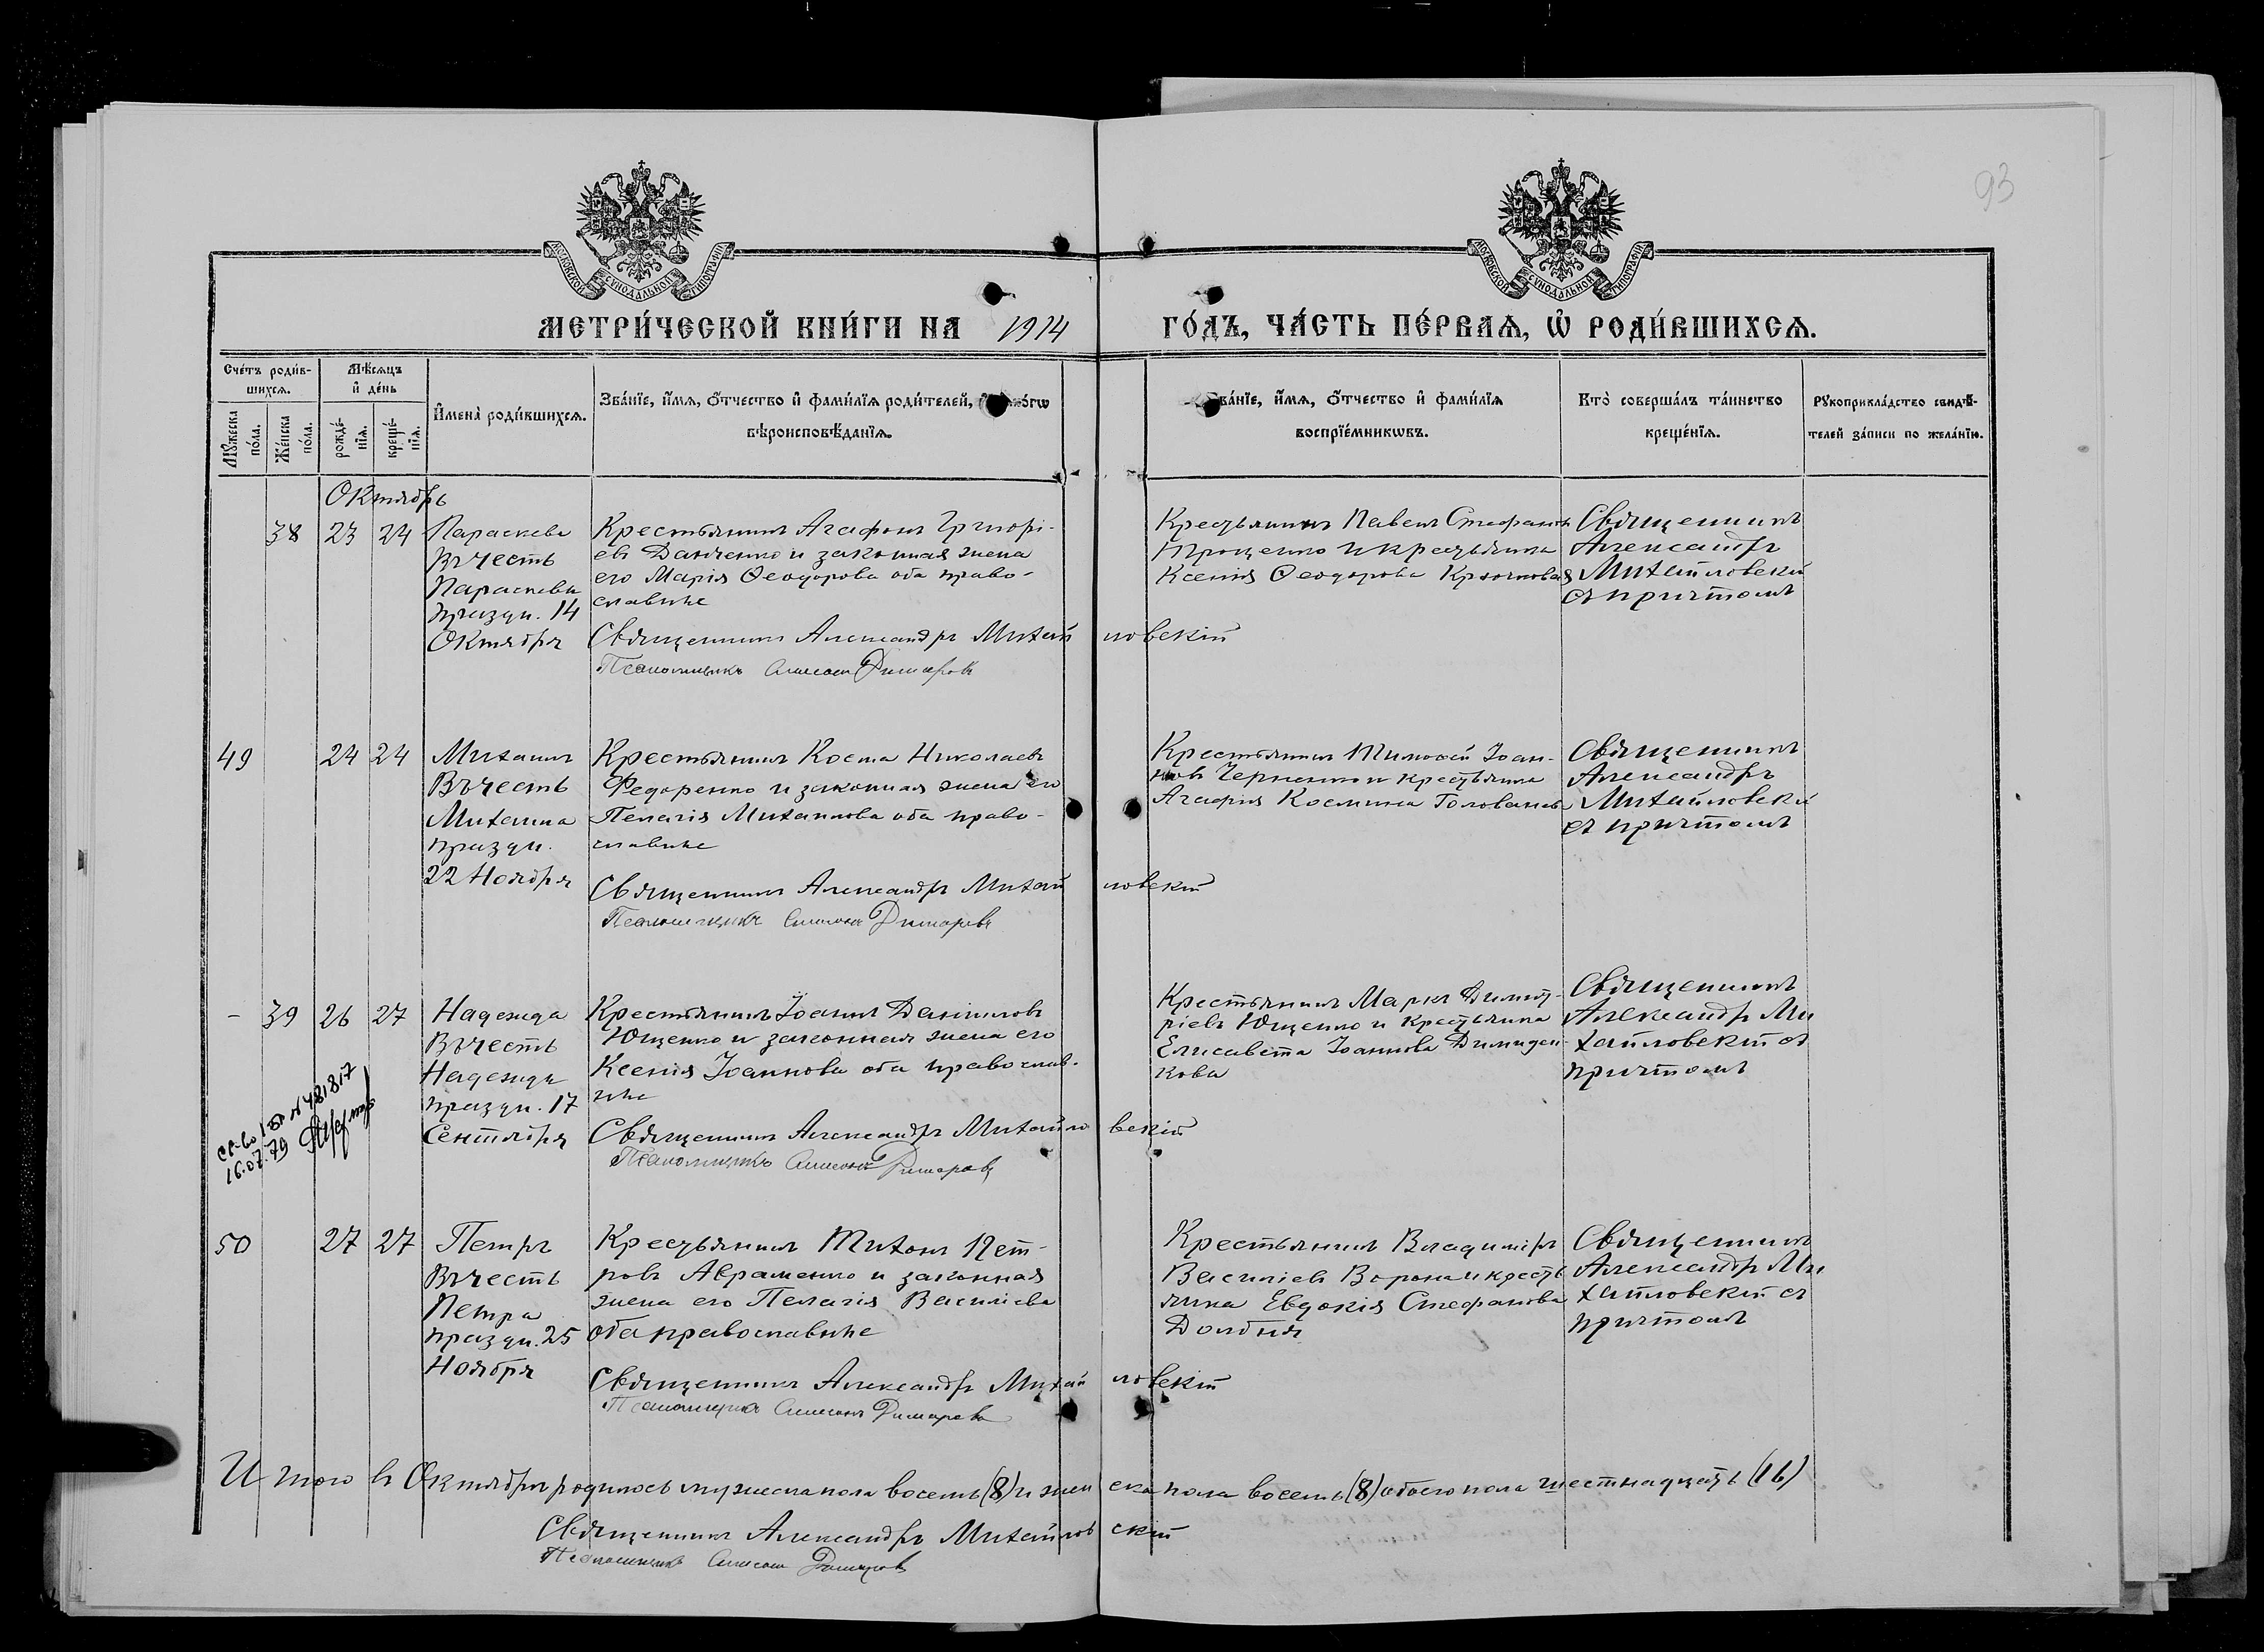 93
МОСКОВСКОЙ СѴНОДАЛЬНОЙ ТИПОГРАФІИ
МОСКОВСКОЙ СѴНОДАЛЬНОЙ ТИПОГРАФІИ
МЕТРИ́ЧЕСКОЙ КНИ́ГИ НА 1914 ГО́ДЪ, ЧА́СТЬ ПЕ́РВАѦ, Ѡ҆ РОДИ́ВШИХСѦ.
Сче́тъ роди́в-
шихсѧ.
Мѣсѧцъ
и҆ де́нь
Мꙋжеска
по́ла.
Же́нска
по́ла.
рожде́-
нїѧ.
креще́-
нїѧ.
И҆мена̀ роди́вшихсѧ.
Зва́нїе, и҆́мѧ, ѻ҆́тчество и҆ фами́лїѧ роди́телей,
вѣроисповѣ́данїѧ.
Зва́нїе, и҆́мѧ, ѻ҆́тчество и҆ фами́лїѧ
воспрїе́мникѡвъ.
Кто̀ соверша́лъ та́инство
креще́нїѧ.
Рꙋкоприкла́дство свидѣ́-
телей за́писи по жела́нїю.
Октябрь
38 23 24
Параскева
Въ честь
Параскевы
праздн. 14
Октября
Крестьянинъ Агафонъ Григорі-
евъ Данченко и законная жена
его Марія Ѳеодорова оба право-
славные
Священникъ Александръ Михайловскій
Псаломщикъ Симеонъ Димаровъ
Крестьянинъ Павелъ Стефановъ
Проценко и крестьянка
Ксенія Ѳеодорова Крючковая
Священникъ
Александръ
Михайловскій
съ причтомъ
49 24 24
Михаилъ
Въ честь
Михаила
праздн.
22 Ноября
Крестьянинъ Косма Николаевъ
Федоренко и законная жена его
Пелагія Михаилова оба право-
славные
Священникъ Александръ Михайловскій
Псаломщикъ Симеонъ Димаровъ
Крестьянинъ Тимоѳей Іоан-
новъ Черненко и крестьянка
Агафія Космина Голованева
Священникъ
Александръ
Михайловскій
съ причтомъ
- 39 26 27
Надежда
Въ честь
Надежды
праздн. 17
Сентября
Крестьянинъ Іоаннъ Даніиловъ
Ющенко и законная жена его
Ксенія Іоаннова оба православ-
ные
Священникъ Александръ Михайловскій
Псаломщикъ Симеонъ Димаровъ
Крестьянинъ Маркъ Димит-
ріевъ Ющенко и крестьянка
Елисавета Іоаннова Димиден-
кова
Священникъ
Александръ Ми
хайловскій съ
причтомъ
св-во I БП N 481817
16.07.79
50 27 27
Петръ
Въ честь
Петра
праздн. 25
Ноября
Крестьянинъ Тихонъ Пет-
ровъ Авраменко и законная
жена его Пелагія Василіева
оба православные
Священникъ Александръ Михайловскій
Псаломщикъ Симеонъ Димаровъ
Крестьянинъ Владиміръ
Василіевъ Ворона и кресть
янка Евдокія Стефанова
Долбня
Священникъ
Александръ Ми
хайловскій съ
причтомъ
Итого въ Октябрѣ родилось мужеска пола восемь (8) и женска пола восемь (8) обоего пола шестнадцать (16)
Священникъ Александръ Михайловскій
Псаломщикъ Симеонъ Димаровъ